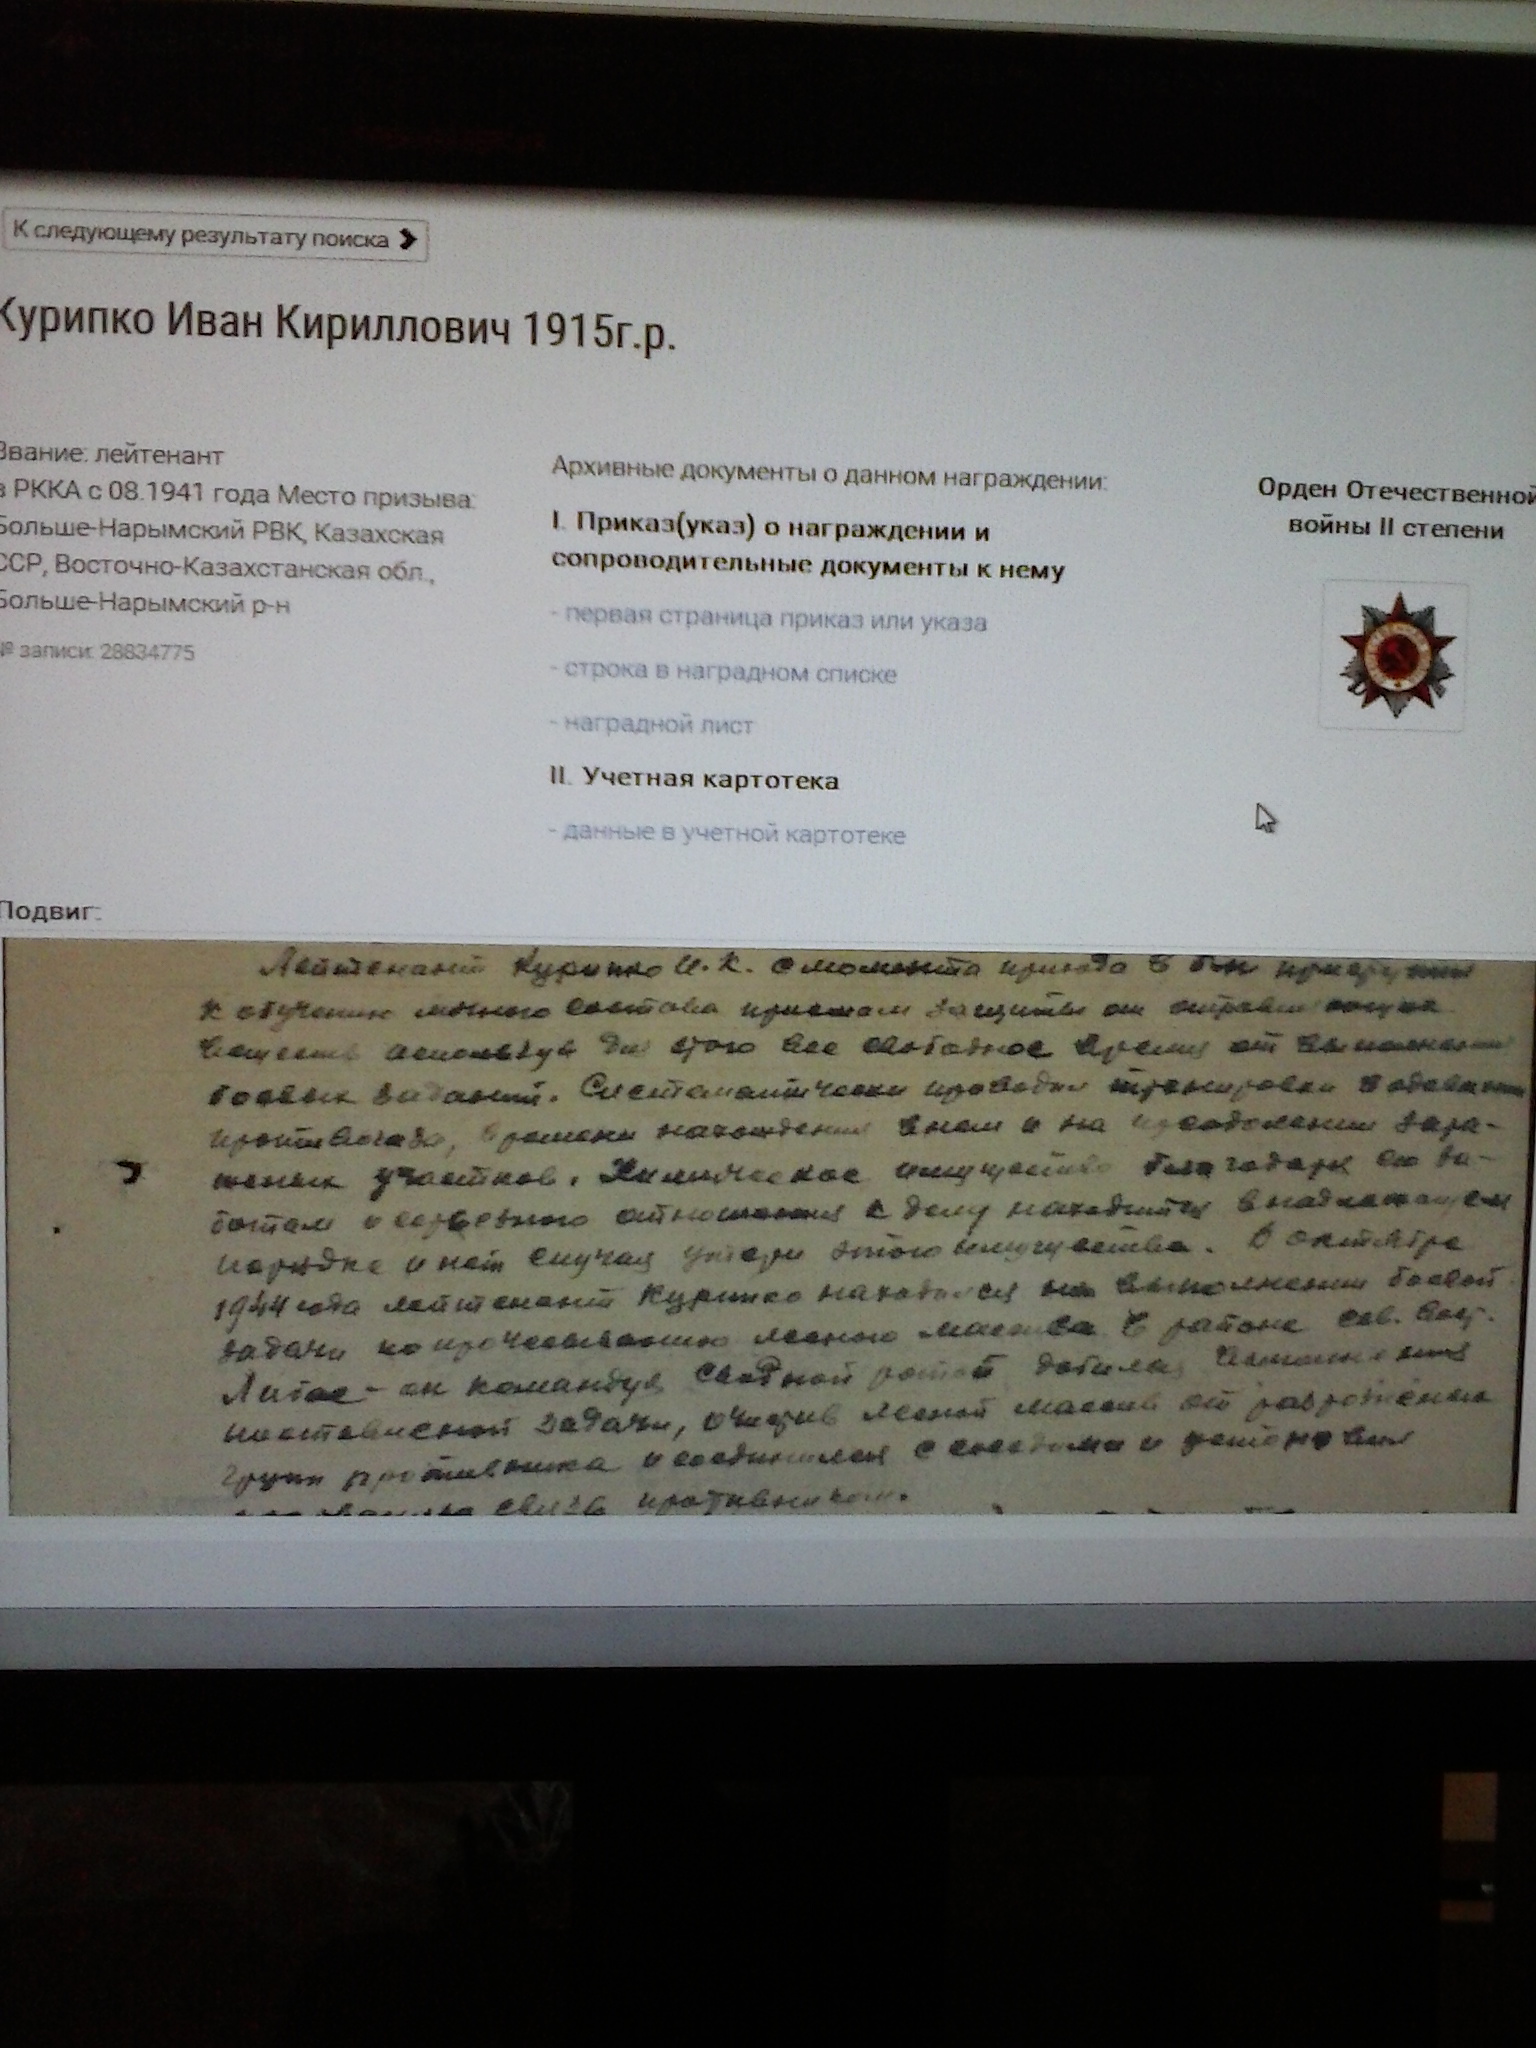 К следующему результату поиска
Курипко Иван Кириллович 1915г.р.
Звание: лейтенант
в РККА с 08.1941 года Место призыва:
Больше-Нарымский РВК, Казахская
ССР, Восточно-Казахстанская обл.,
Больше-Нарымский р-н
№ записи: 28834775
Архивные документы о данном награждении:
I. Приказ(указ) о награждении и
сопроводительные документы к нему
- первая страница приказ или указа
- строка в наградном списке
- наградной лист
II. Учетная картотека
- данные в учетной картотеке
Орден Отечественной
войны II степени
Подвиг:
Лейтенант Курипко И.К. с момента прихода в
к обучению личного состава приемам защиты от
веществ используя для этого все свободное время от выполнения
боевых заданий. Систематически проводил тренировки в одевании
противогаза, времени нахождения в нем и на преодолении зара-
женых участков. Химическое имущество благодаря его за-
ботам и серьезного отношения к делу находится в надлежащем
порядке и нет случая утери этого имущества. В октябре
1944 года лейтенант Курипко находился на выполнении боевой
задачи по прочесыванию лесного массива в районе сев. вост.
он командуя сводной ротой добился выполнения
поставленной задачи, очистив лесной массив от разрозненых
групп противника и соединился с соседями и
связь противником.